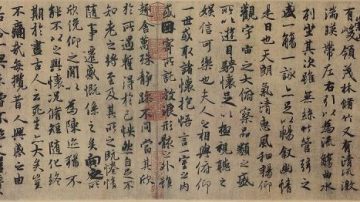 有崇山峻領茂林脩竹又有清流激
湍暎帶左右引以為流觴曲水
列坐其次雖無絲竹管弦之
盛一觴一詠亦足以暢敘幽情
是日也天朗氣清惠風和暢仰
觀宇宙之大俯察品類之盛
所以遊目騁懷足以極視聽之
娛信可樂也夫人之相與俯仰
一世或取諸懷抱悟言一室之內
或因寄所託放浪形骸之外雖
趣舍萬殊靜躁不同當其欣
於所遇蹔得於己怏然自足不
知老之將至及其所之既惓情
隨事遷感慨係之矣向之所
欣俛仰之間以為陳跡猶不
能不以之興懷況脩短隨化終
期於盡古人云死生亦大矣豈
不痛哉每攬昔人興感之由